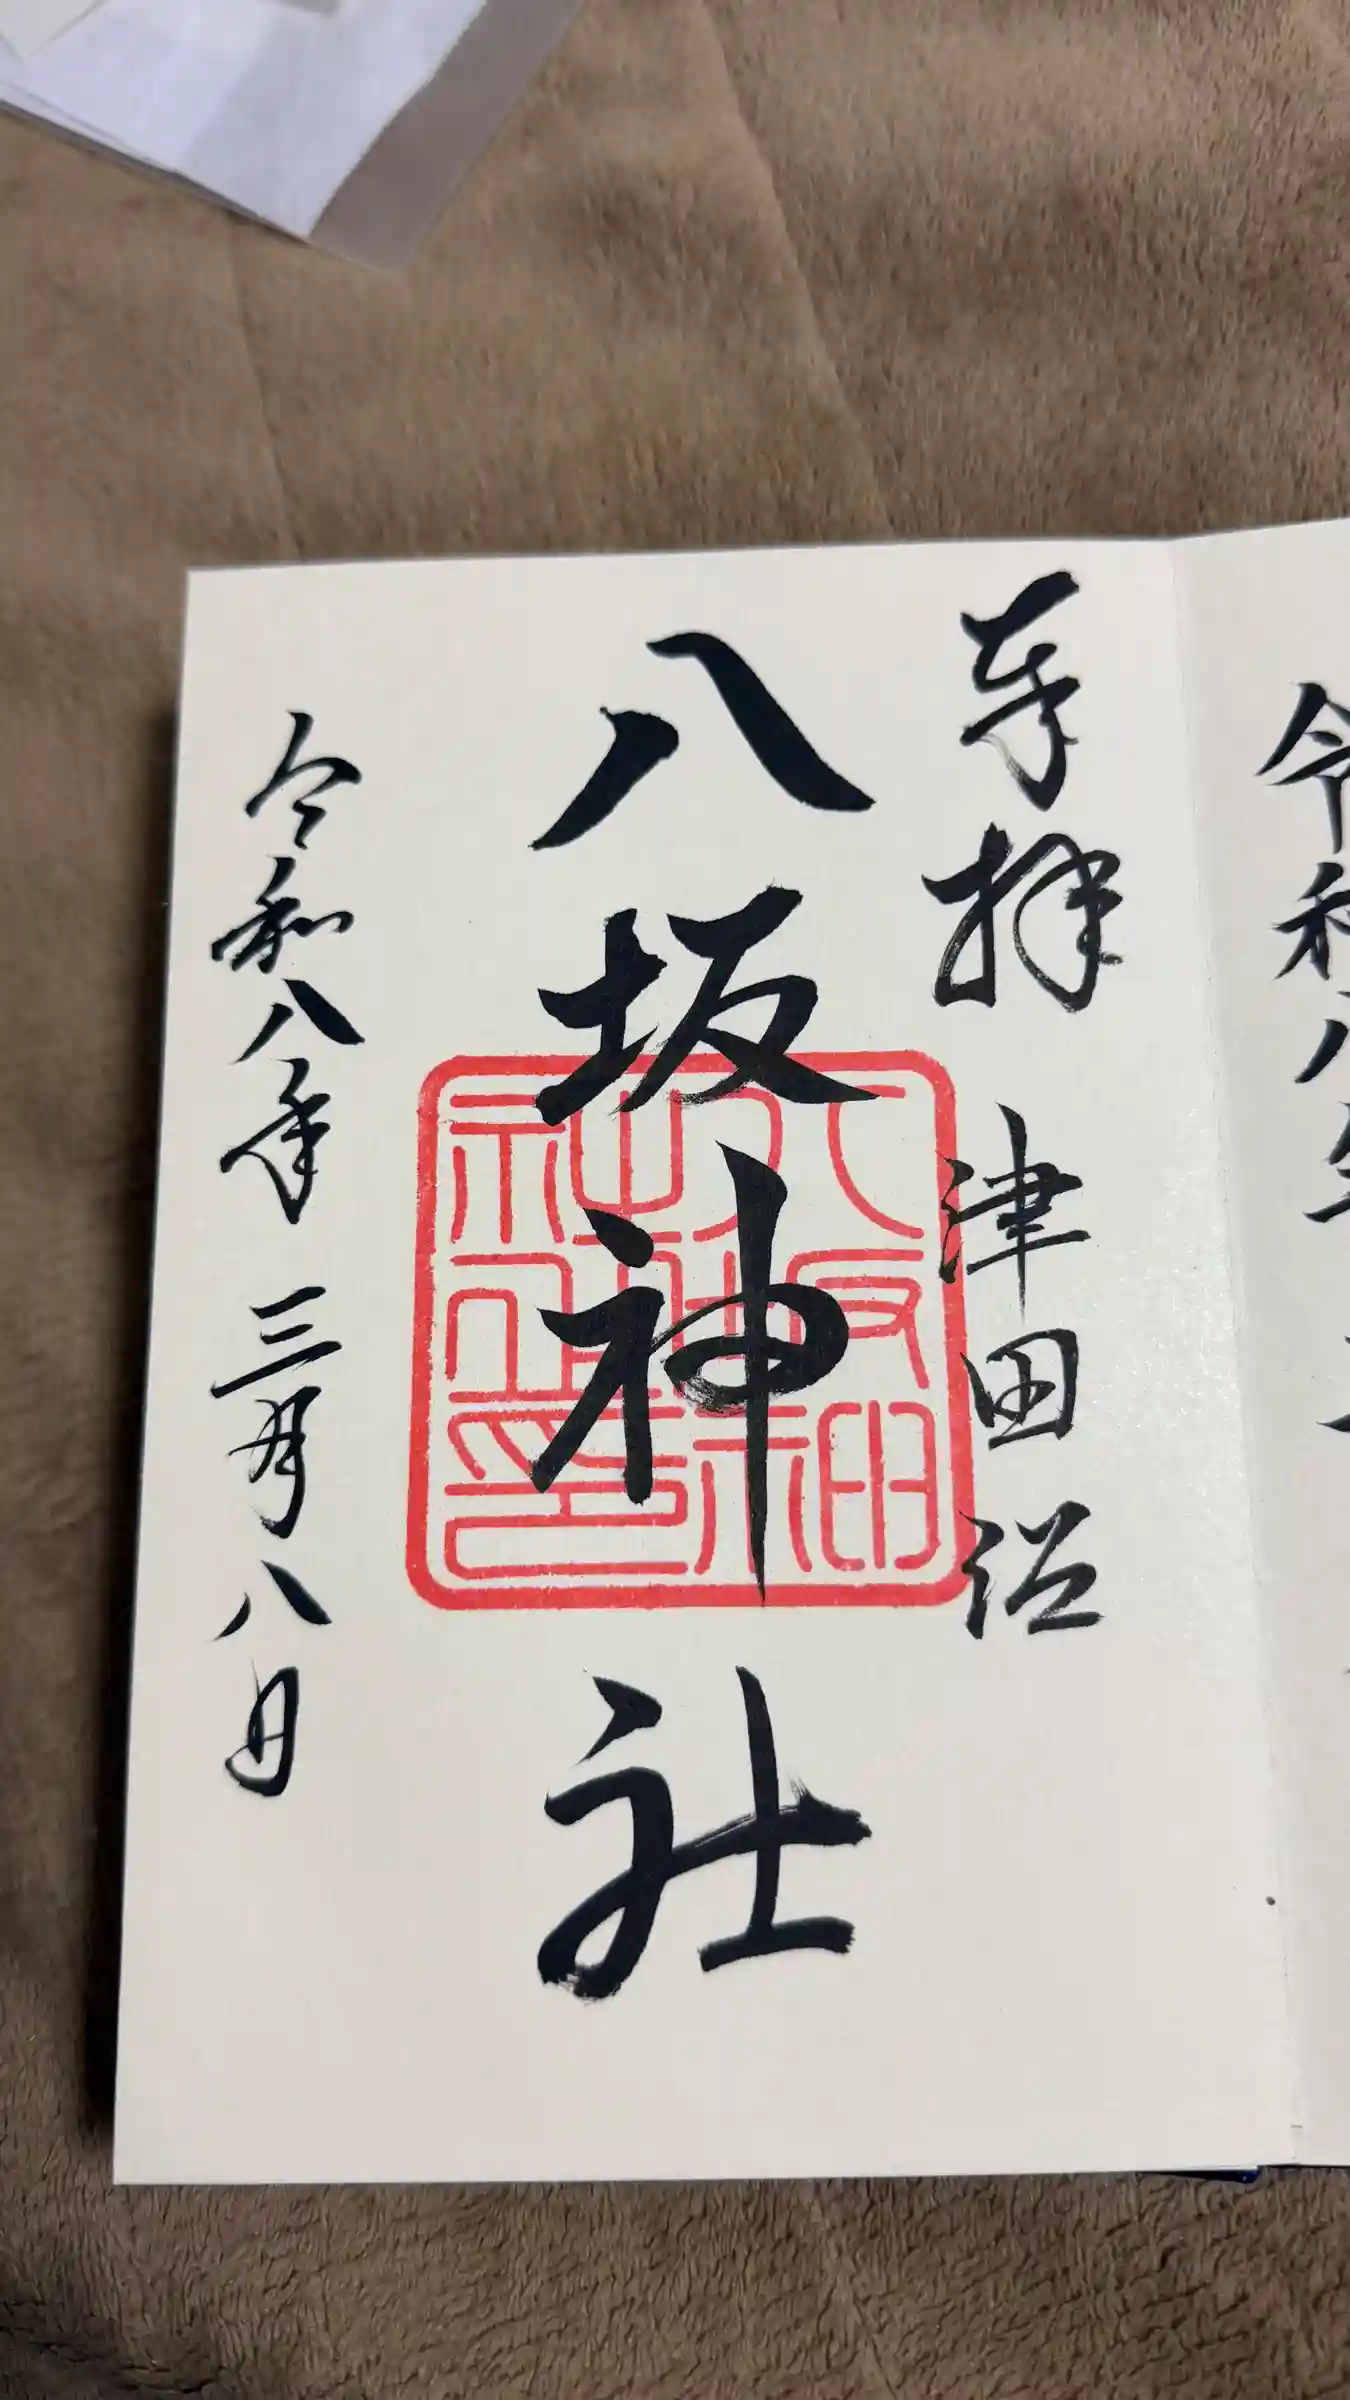 奉拝 津田沼
八坂神社
令和八年 三月八日
八坂神社之印
令和八年